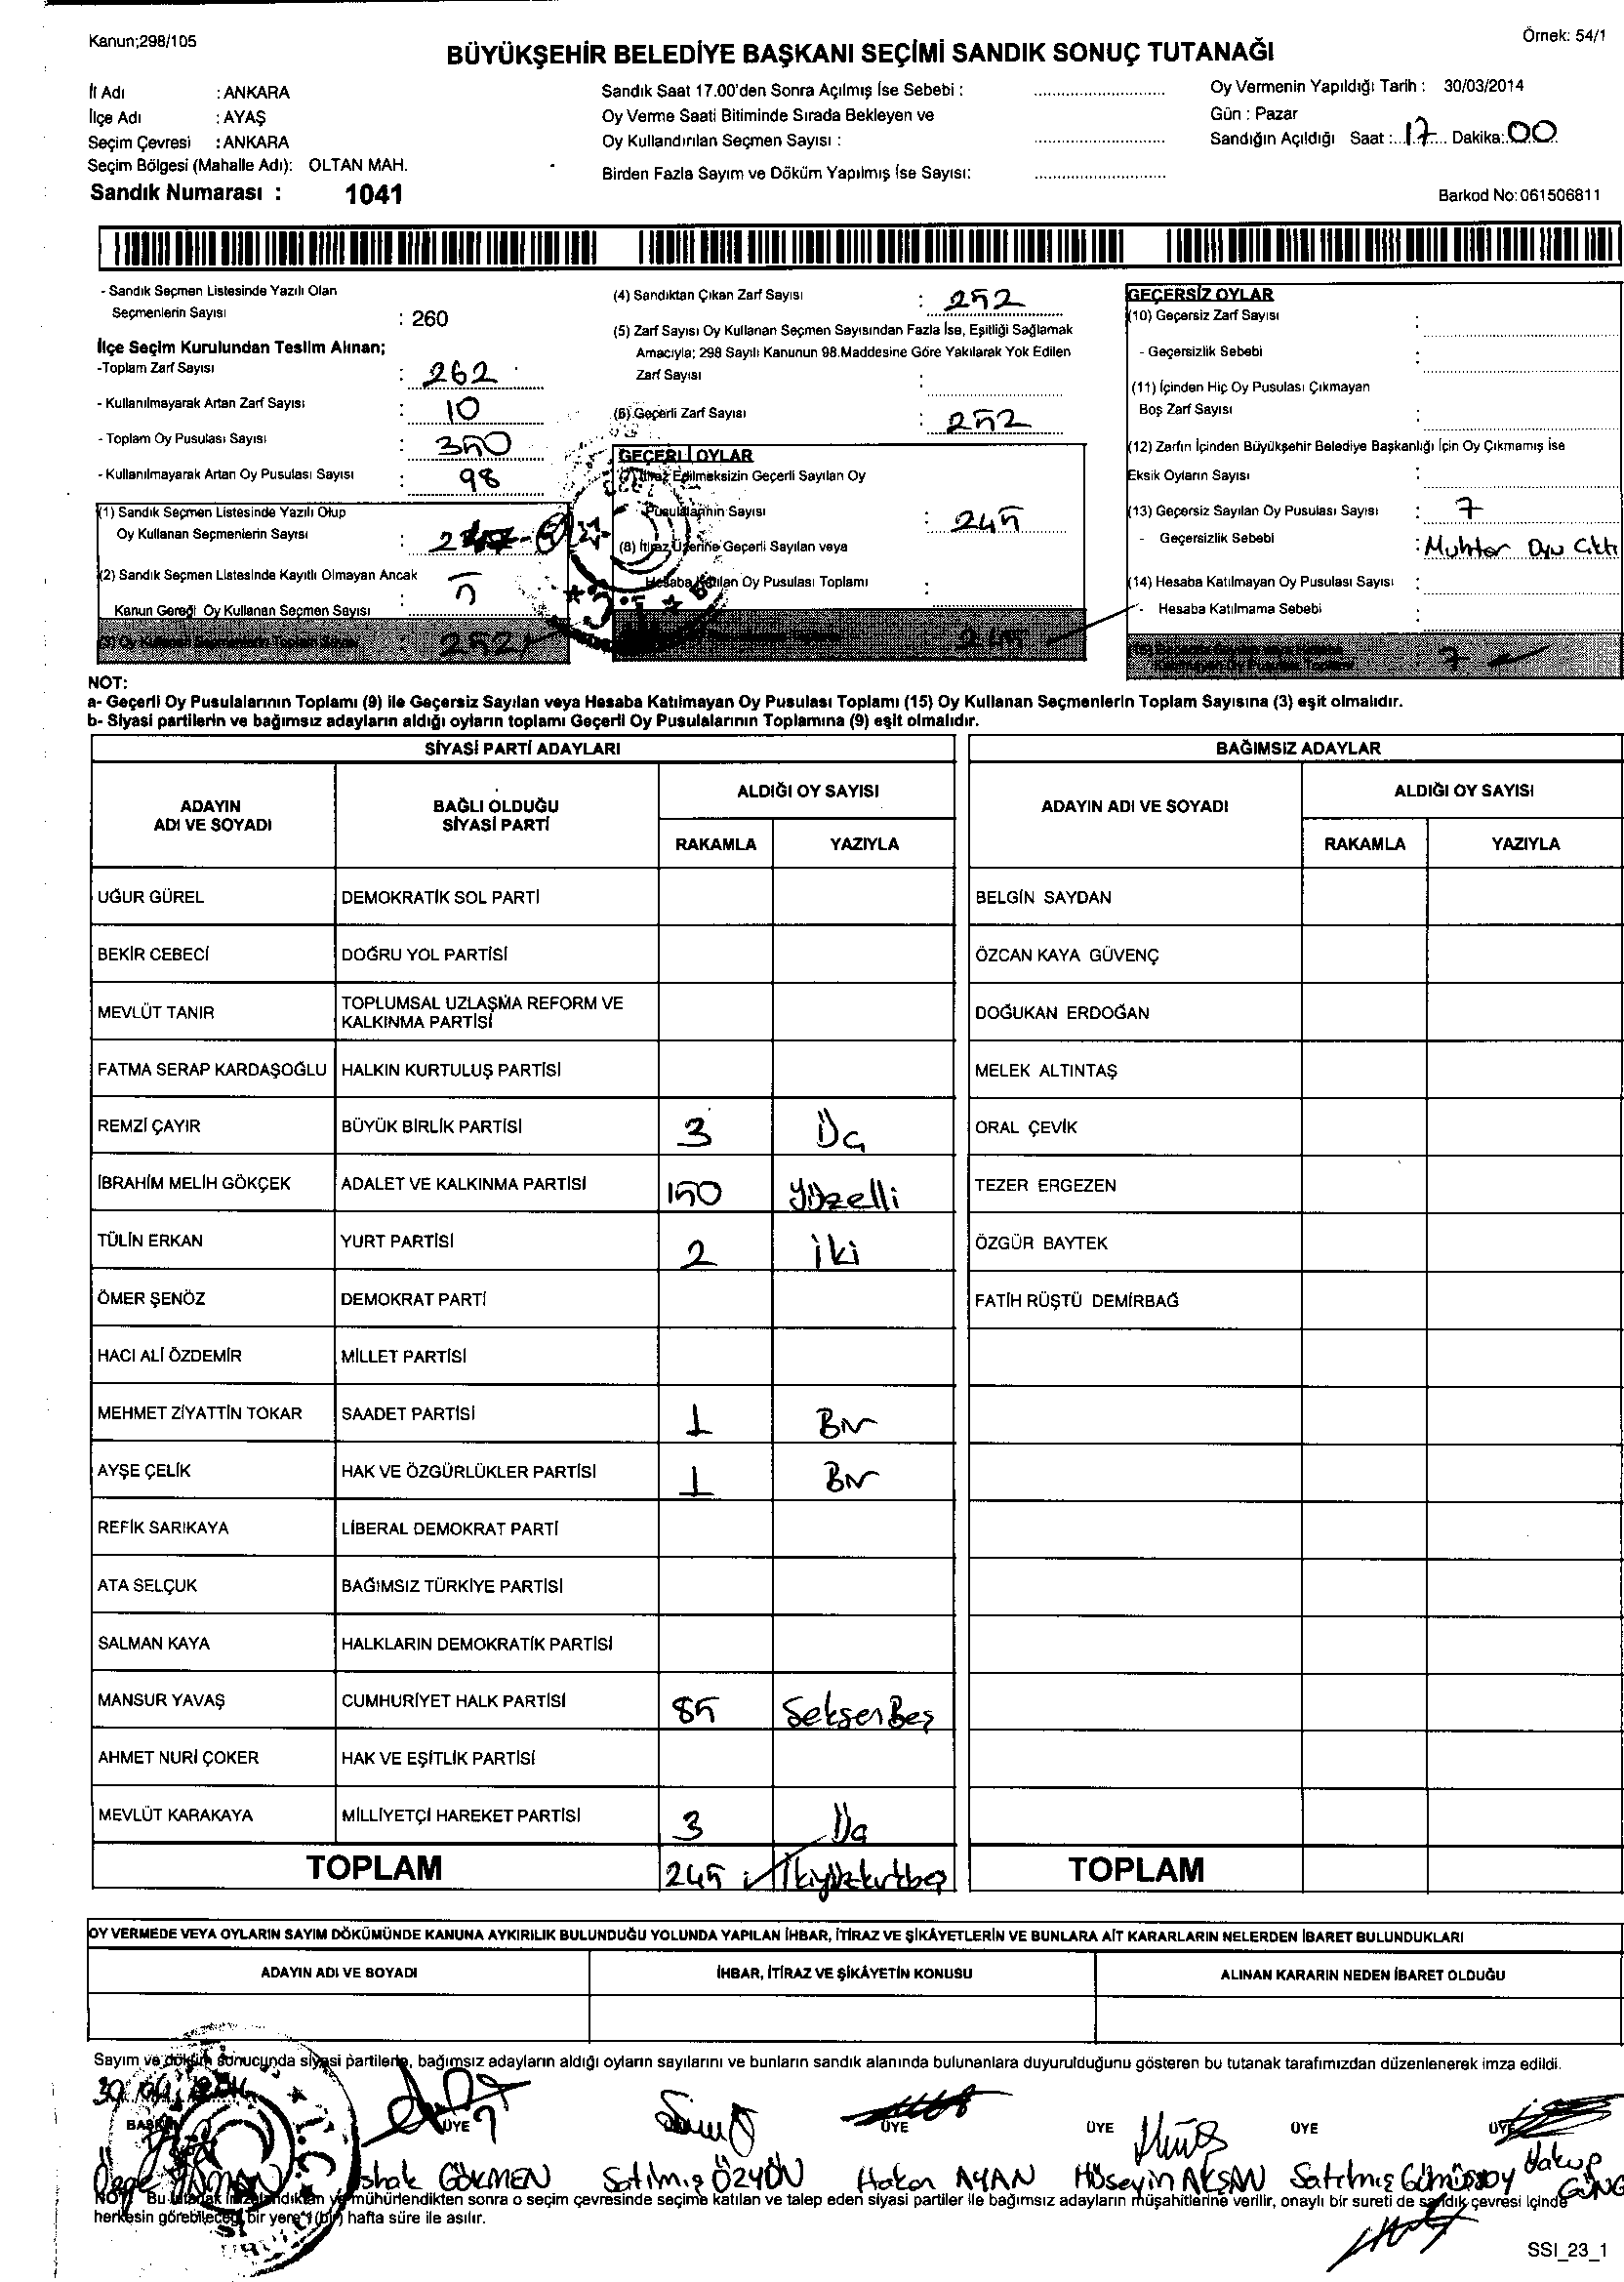 Kanun;298/105
Örnek: 54/1
BÜYÜKŞEHİR BELEDİYE BAŞKANI SEÇİMİ SANDIK SONUÇ TUTANAĞI
İl Adı : ANKARA
İlçe Adı : AYAŞ
Seçim Çevresi : ANKARA
Seçim Bölgesi (Mahalle Adı): OLTAN MAH.
Sandık Numarası : 1041
Sandık Saat 17.00'den Sonra Açılmış İse Sebebi :
Oy Verme Saati Bitiminde Sırada Bekleyen ve
Oy Kullandırılan Seçmen Sayısı :
Birden Fazla Sayım ve Döküm Yapılmış İse Sayısı:
Oy Vermenin Yapıldığı Tarih : 30/03/2014
Gün : Pazar
Sandığın Açıldığı Saat : 17 Dakika: 00
Barkod No: 061506811
- Sandık Seçmen Listesinde Yazılı Olan
Seçmenlerin Sayısı : 260
İlçe Seçim Kurulundan Teslim Alınan;
-Toplam Zarf Sayısı : 262
- Kullanılmayarak Artan Zarf Sayısı : 10
- Toplam Oy Pusulası Sayısı : 350
- Kullanılmayarak Artan Oy Pusulası Sayısı : 98
(1) Sandık Seçmen Listesinde Yazılı Olup
Oy Kullanan Seçmenlerin Sayısı :
(2) Sandık Seçmen Listesinde Kayıtlı Olmayan Ancak
Kanun Gereği Oy Kullanan Seçmen Sayısı : 5
(3) Oy Kullanan Seçmenlerin Toplam Sayısı : 252
(4) Sandıktan Çıkan Zarf Sayısı : 252
(5) Zarf Sayısı Oy Kullanan Seçmen Sayısından Fazla İse, Eşitliği Sağlamak
Amacıyla; 298 Sayılı Kanunun 98.Maddesine Göre Yakılarak Yok Edilen
Zarf Sayısı :
(6) Geçerli Zarf Sayısı : 252
GEÇERLİ OYLAR
(7) İtiraz Edilmeksizin Geçerli Sayılan Oy
Pusulalarının Sayısı : 245
(8) İtiraz Üzerine Geçerli Sayılan veya
Hesaba Katılan Oy Pusulası Toplamı :
245
GEÇERSİZ OYLAR
(10) Geçersiz Zarf Sayısı :
- Geçersizlik Sebebi :
(11) İçinden Hiç Oy Pusulası Çıkmayan
Boş Zarf Sayısı :
(12) Zarfın İçinden Büyükşehir Belediye Başkanlığı İçin Oy Çıkmamış İse
Eksik Oyların Sayısı :
(13) Geçersiz Sayılan Oy Pusulası Sayısı : 7
- Geçersizlik Sebebi : Muhtar Oyu Çıktı
(14) Hesaba Katılmayan Oy Pusulası Sayısı :
- Hesaba Katılmama Sebebi :
7
NOT:
a- Geçerli Oy Pusulalarının Toplamı (9) ile Geçersiz Sayılan veya Hesaba Katılmayan Oy Pusulası Toplamı (15) Oy Kullanan Seçmenlerin Toplam Sayısına (3) eşit olmalıdır.
b- Siyasi partilerin ve bağımsız adayların aldığı oyların toplamı Geçerli Oy Pusulalarının Toplamına (9) eşit olmalıdır.
SİYASİ PARTİ ADAYLARI
ADAYIN ADI VE SOYADI BAĞLI OLDUĞU SİYASİ PARTİ ALDIĞI OY SAYISI
RAKAMLA YAZIYLA
UĞUR GÜREL DEMOKRATİK SOL PARTİ
BEKİR CEBECİ DOĞRU YOL PARTİSİ
MEVLÜT TANIR TOPLUMSAL UZLAŞMA REFORM VE
KALKINMA PARTİSİ
FATMA SERAP KARDAŞOĞLU HALKIN KURTULUŞ PARTİSİ
REMZİ ÇAYIR BÜYÜK BİRLİK PARTİSİ 3 Üç
İBRAHİM MELİH GÖKÇEK ADALET VE KALKINMA PARTİSİ 150 Yüzelli
TÜLİN ERKAN YURT PARTİSİ 2 iki
ÖMER ŞENÖZ DEMOKRAT PARTİ
HACI ALİ ÖZDEMİR MİLLET PARTİSİ
MEHMET ZİYATTİN TOKAR SAADET PARTİSİ 1 Bir
AYŞE ÇELİK HAK VE ÖZGÜRLÜKLER PARTİSİ 1 Bir
REFİK SARIKAYA LİBERAL DEMOKRAT PARTİ
ATA SELÇUK BAĞIMSIZ TÜRKİYE PARTİSİ
SALMAN KAYA HALKLARIN DEMOKRATİK PARTİSİ
MANSUR YAVAŞ CUMHURİYET HALK PARTİSİ 85 SeksenBeş
AHMET NURİ ÇOKER HAK VE EŞİTLİK PARTİSİ
MEVLÜT KARAKAYA MİLLİYETÇİ HAREKET PARTİSİ 3 Üç
TOPLAM 245 İkiyüzkırkbeş
BAĞIMSIZ ADAYLAR
ADAYIN ADI VE SOYADI ALDIĞI OY SAYISI
RAKAMLA YAZIYLA
BELGİN SAYDAN
ÖZCAN KAYA GÜVENÇ
DOĞUKAN ERDOĞAN
MELEK ALTINTAŞ
ORAL ÇEVİK
TEZER ERGEZEN
ÖZGÜR BAYTEK
FATİH RÜŞTÜ DEMİRBAĞ
TOPLAM
OY VERMEDE VEYA OYLARIN SAYIM DÖKÜMÜNDE KANUNA AYKIRILIK BULUNDUĞU YOLUNDA YAPILAN İHBAR, İTİRAZ VE ŞİKÂYETLERİN VE BUNLARA AİT KARARLARIN NELERDEN İBARET BULUNDUKLARI
ADAYIN ADI VE SOYADI İHBAR, İTİRAZ VE ŞİKÂYETİN KONUSU ALINAN KARARIN NEDEN İBARET OLDUĞU
Sayım ve döküm sonucunda siyasi partilerin, bağımsız adayların aldığı oyların sayılarını ve bunların sandık alanında bulunanlara duyurulduğunu gösteren bu tutanak tarafımızdan düzenlenerek imza edildi.
BAŞKAN ÜYE ÜYE ÜYE ÜYE ÜYE
İshak GÖKMEN Satılmış ÖZYÖN Hakan AYAN Hüseyin AKSAN Satılmış Gümüşsoy Yakup GÜNG
NOT: Bu tutanak imzalandıktan ve mühürlendikten sonra o seçim çevresinde seçime katılan ve talep eden siyasi partiler ile bağımsız adayların müşahitlerine verilir, onaylı bir sureti de sandık çevresi içinde
herkesin görebileceği bir yere 1(bir) hafta süre ile asılır.
SSI_23_1